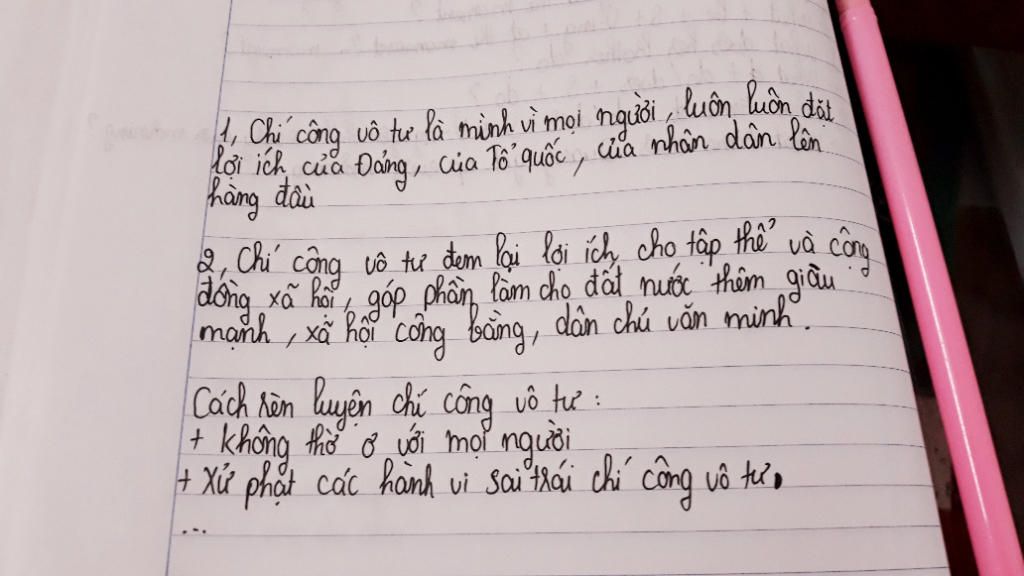 1, Chí công vô tư là mình vì mọi người, luôn luôn đặt
lợi ích của Đảng, của Tổ quốc, của nhân dân lên
hàng đầu
2, Chí công vô tư đem lại lợi ích cho tập thể và cộng
đồng xã hội, góp phần làm cho đất nước thêm giàu
mạnh, xã hội công bằng, dân chủ văn minh.
Cách rèn luyện chí công vô tư:
+ không thờ ơ với mọi người
+ Xử phạt các hành vi sai trái chí công vô tư.
...